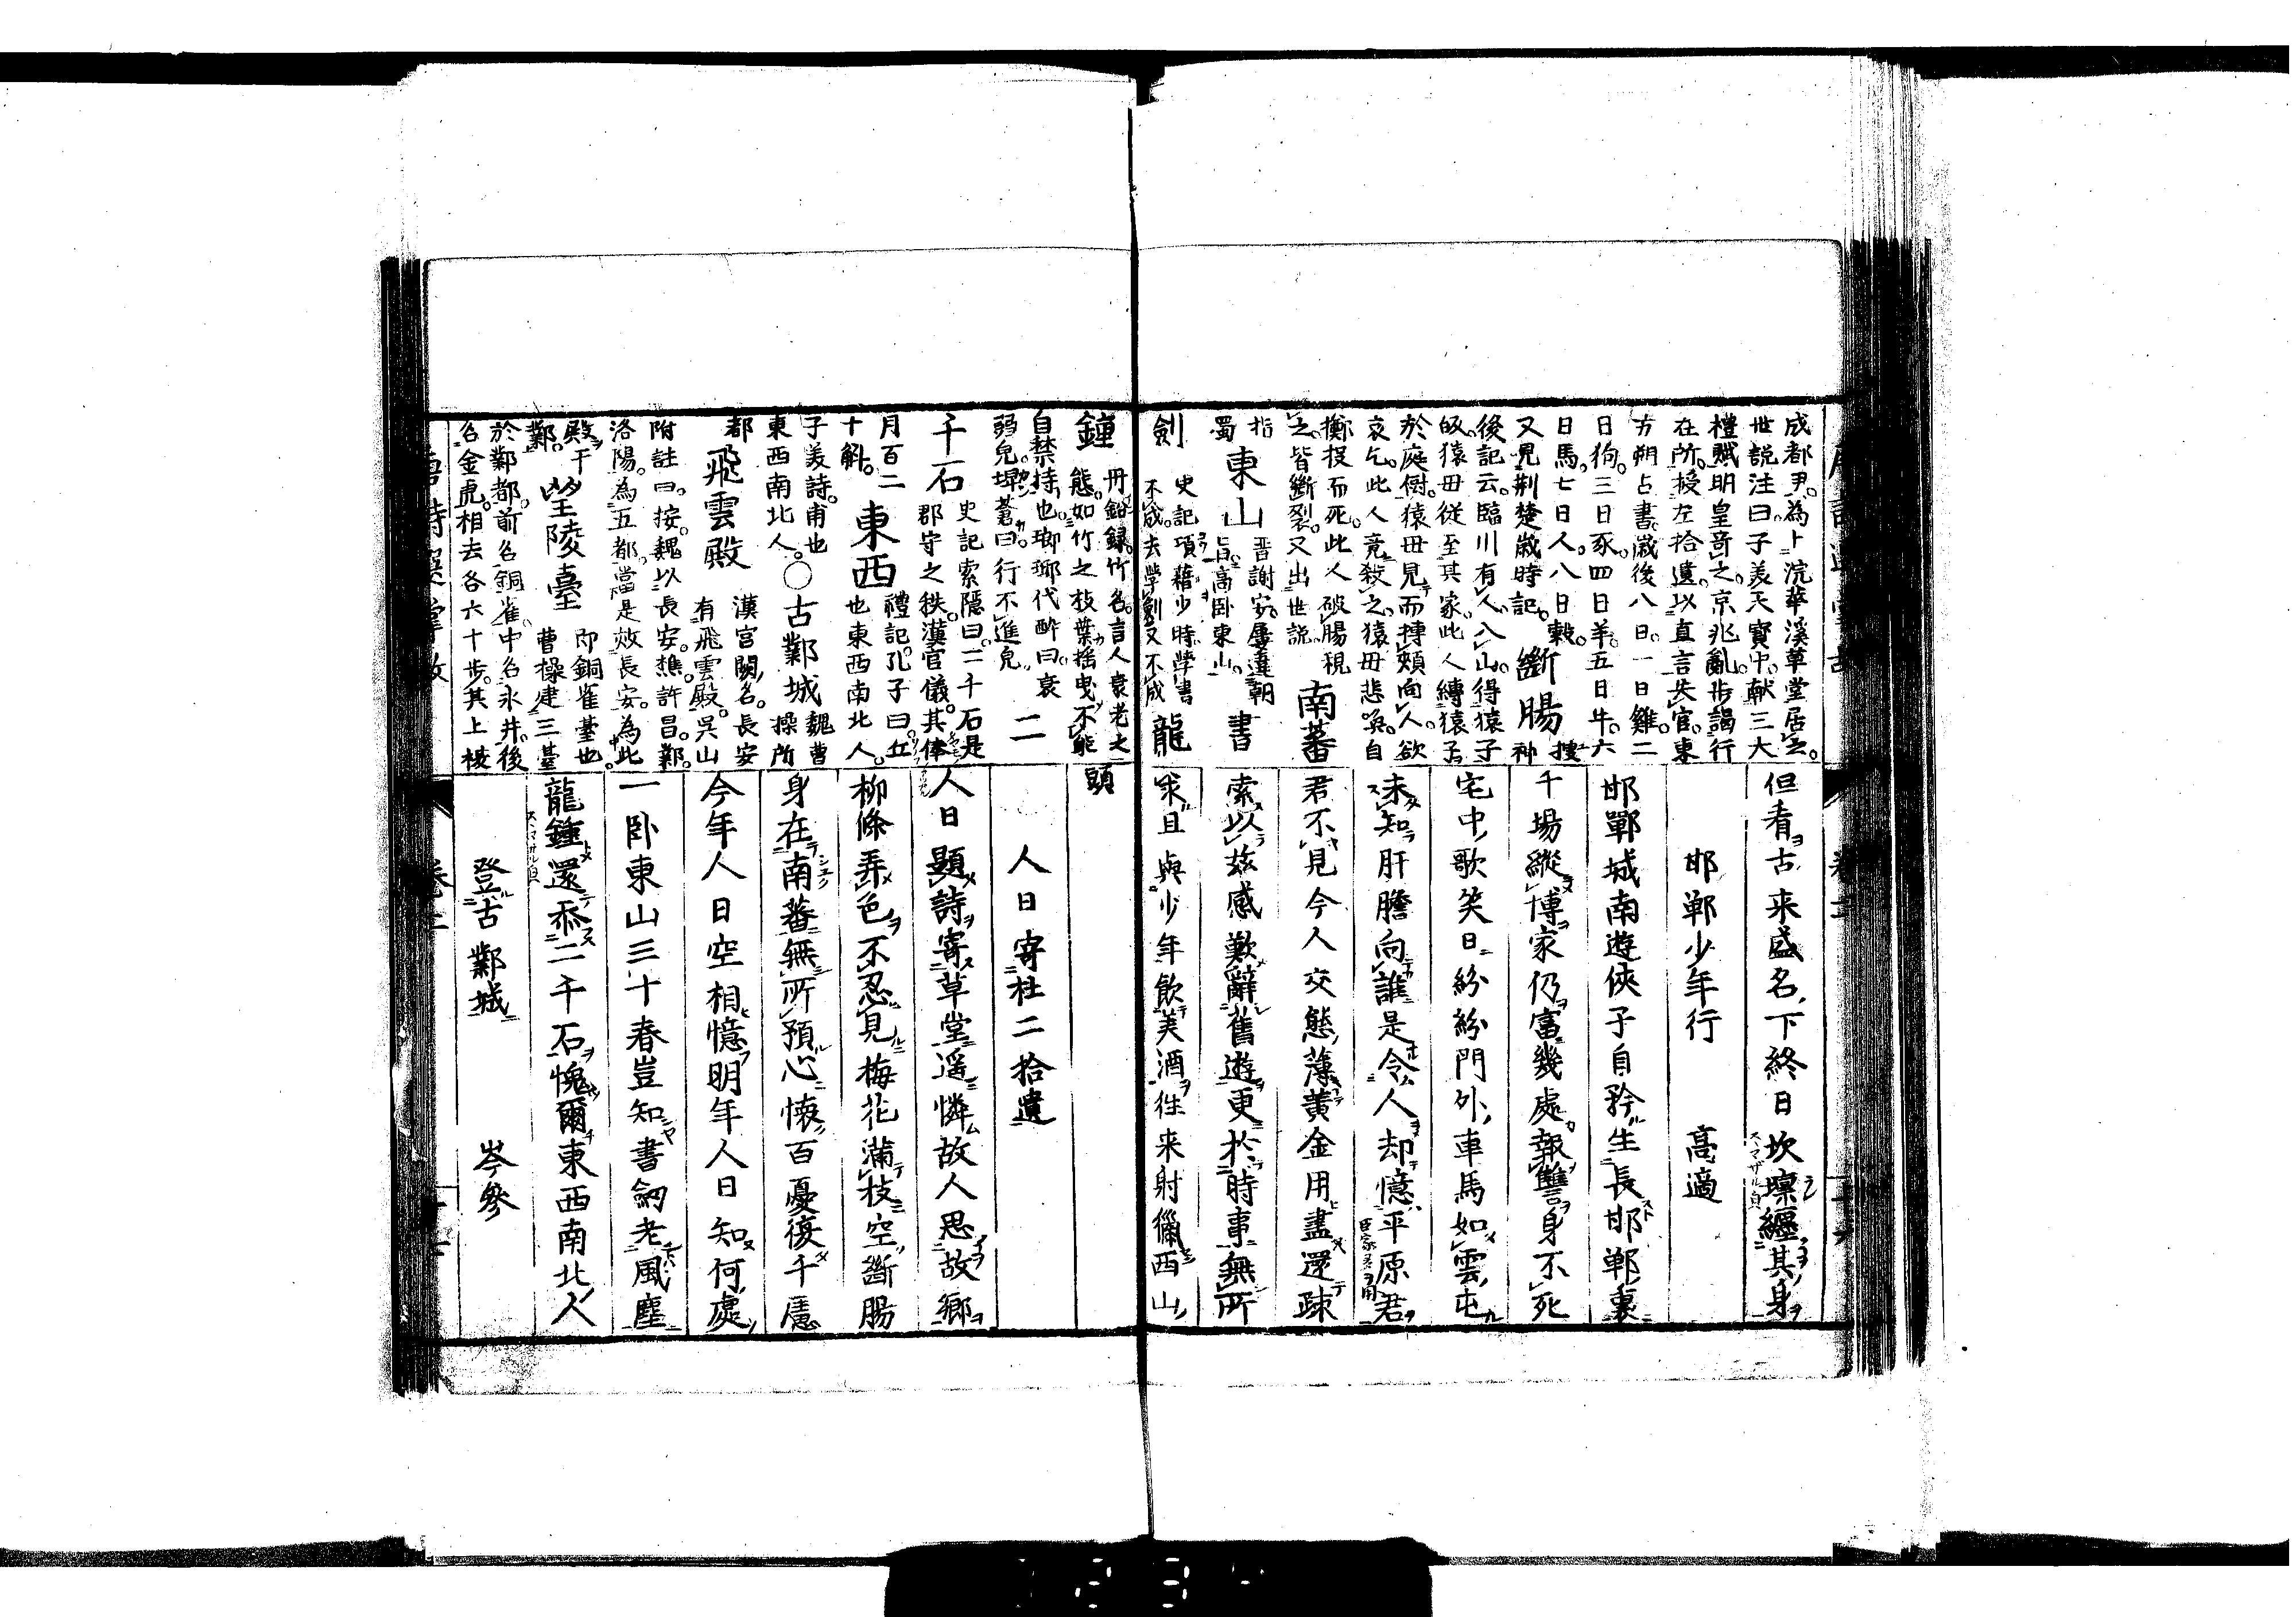 成都尹。為卜浣華溪草堂居云。
世説注曰子美天寳中。献三大
禮賦明皇竒之。京兆亂步謁行
在所。授左拾遺。以直言失官。東
方朔占書。歳後八日。一日雞。二
日狗。三日豕。四日羊。五日牛。六
日馬。七日人。八日穀。
又見荆楚歳時記。
斷腸
搜
神
後記云。臨川有人入山。得猿子
皈。猿毋從至其家。此人縛猿子
於庭樹。猿毋見而摶頰向人。欲
哀乞。此人竟殺之。猿毋悲喚。自
擲投而死。此人破腸視
之。皆斷裂。又出世説。
南蕃
指
蜀
東山
晋謝安。屡違朝
旨。高卧東山。
書
劍
史記項藉少時。學書
不成。去學劍又不成
龍
但看古来盛名下終日坎壈纏其身
邯鄲少年行　高適
邯鄲城南遊俠子自矜生長邯鄲裏
千場縱博家仍富幾處報讐身不死
宅中歌笑日紛紛門外車馬如雲屯
未知肝膽向誰是令人却憶平原君
君不見今人交態薄黄金用盡還疎
索以玆感歎辭舊遊更於時事無所
求且與少年飲美酒往来射獵西山
頭
鍾
丹鉛録。竹名。言人衰老之
態。如竹之枝葉揺曳不能
自禁持也。瑯琊代醉曰。衰
弱皃。埤蒼曰。行不進皃
二
千石
史記索隠曰。二千石是
郡守之秩。漢官儀。其俸
月百二
十斛。
東西
禮記。孔子曰。丘
也東西南北人。
子美詩。甫也
東西南北人。
○古鄴城
魏曹
操所
都
飛雲殿
漢宮闕名。長安
有飛雲殿。呉山
附註曰。按。魏以長安。譙。許昌。鄴。
洛陽。為五都。當是效長安。為此
殿于
鄴。
望陵臺
即銅雀臺也。
曹操建三臺
於鄴都。前名銅雀。中名氷井。後
名金虎。相去各六十步。其上楼
人日寄杜二拾遺
人日題詩寄草堂遥憐故人思故鄉
柳條弄色不忍見梅花滿枝空斷腸
身在南蕃無所預心懷百憂復千慮
今年人日空相憶明年人日知何處
一卧東山三十春豈知書劒老風塵
龍鍾還忝二千石愧爾東西南北人
登古鄴城　岑參